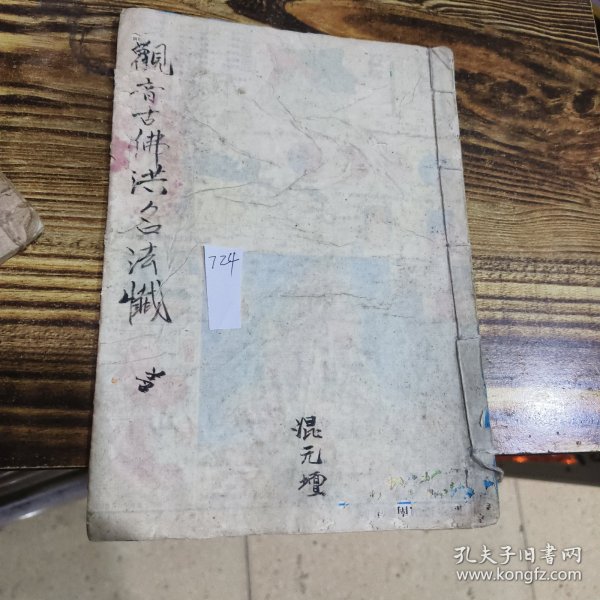 觀音古佛洪名法懺
724
混元壇
孔夫子旧书网
www.kongfz.com